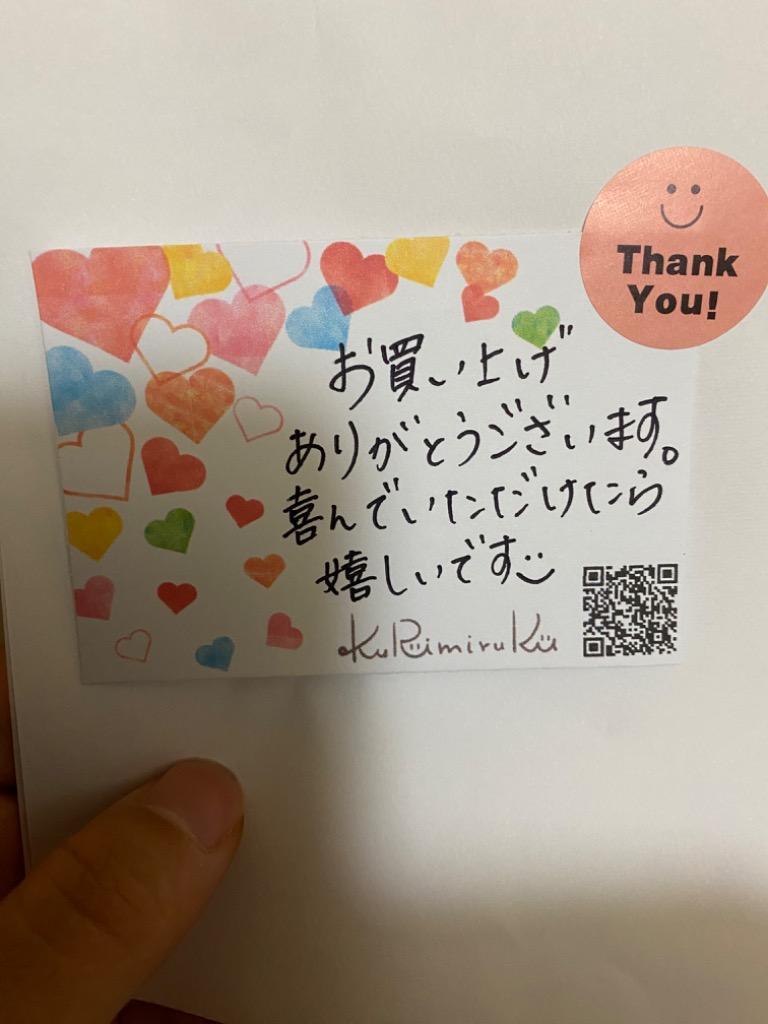 Thank
You!
お買い上げ
ありがとうございます。
喜んでいただけたら
嬉しいです
KuRumiruKu